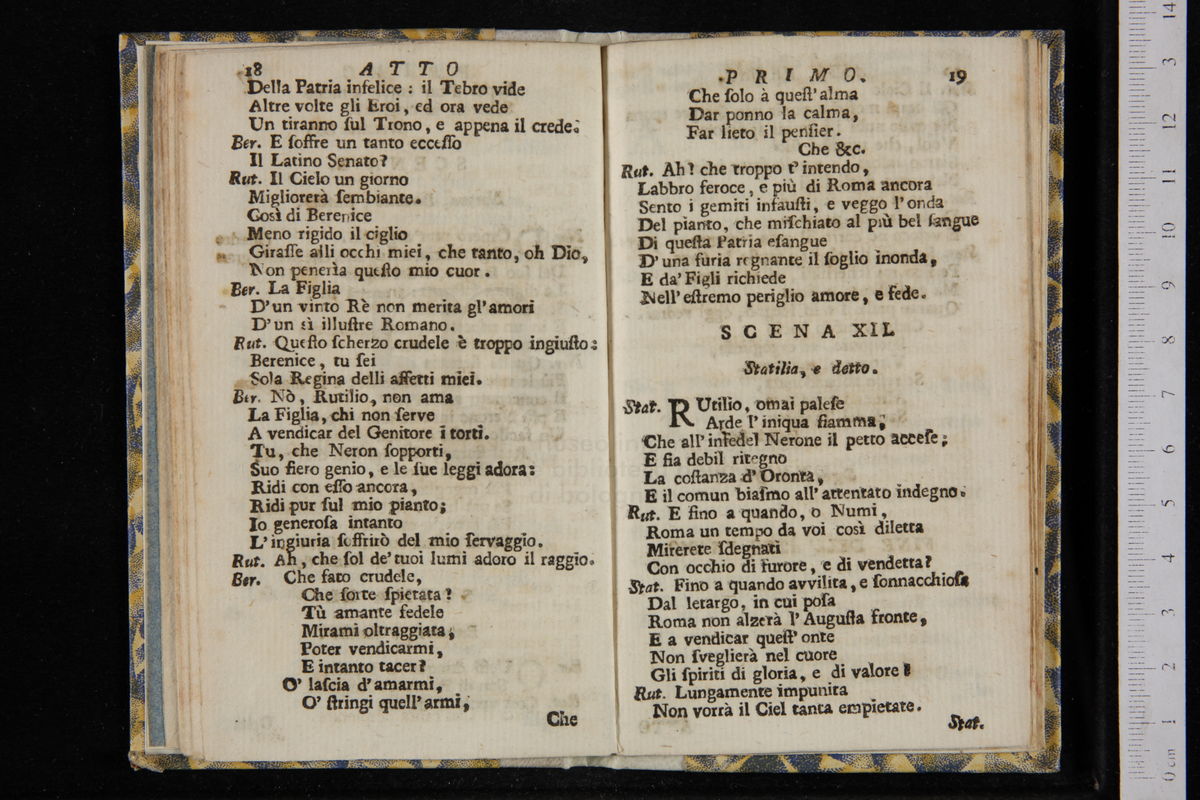 18 ATTO
Della Patria infelice : il Tebro vide
Altre volte gli Eroi, ed ora vede
Un tiranno ſul Trono, e appena il crede.
Ber. E ſoffre un tanto ecceſſo
Il Latino Senato?
Rut. Il Cielo un giorno
Migliorerà ſembiante.
Così di Berenice
Meno rigido il ciglio
Giraſſe alli occhi miei, che tanto, oh Dio,
Non peneria queſto mio cuor.
Ber. La Figlia
D'un vinto Rè non merita gl'amori
D'un sì illuſtre Romano.
Rut. Queſto ſcherzo crudele è troppo ingiuſto:
Berenice, tu ſei
Sola Regina delli affetti miei.
Ber. Nò, Rutilio, non ama
La Figlia, chi non ſerve
A vendicar del Genitore i torti.
Tu, che Neron ſopporti,
Suo fiero genio, e le ſue leggi adora:
Ridi con eſſo ancora,
Ridi pur ſul mio pianto;
Io generoſa intanto
L'ingiuria ſoffrirò del mio ſervaggio.
Rut. Ah, che ſol de' tuoi lumi adoro il raggio.
Ber. Che fato crudele,
Che ſorte ſpietata?
Tù amante fedele
Mirami oltraggiata,
Poter vendicarmi,
E intanto tacer?
O' laſcia d'amarmi,
O' ſtringi quell'armi,
Che
PRIMO. 19
Che ſolo à queſt'alma
Dar ponno la calma,
Far lieto il penſier.
Che &c.
Rut. Ah! che troppo t'intendo,
Labbro feroce, e più di Roma ancora
Sento i gemiti infauſti, e veggo l'onda
Del pianto, che miſchiato al più bel ſangue
Di queſta Patria eſangue
D'una furia regnante il ſoglio inonda,
E da' Figli richiede
Nell'eſtremo periglio amore, e fede.
SCENA XII.
Statilia, e detto.
Stat. RUtilio, omai paleſe
Arde l'iniqua fiamma,
Che all'infedel Nerone il petto acceſe;
E fia debil ritegno
La coſtanza d'Oronta,
E il comun biaſmo all'attentato indegno.
Rut. E fino a quando, o Numi,
Roma un tempo da voi così diletta
Mirerete ſdegnati
Con occhio di furore, e di vendetta?
Stat. Fino a quando avvilita, e ſonnacchioſa
Dal letargo, in cui poſa
Roma non alzerà l'Auguſta fronte,
E a vendicar queſt'onte
Non ſveglierà nel cuore
Gli ſpiriti di gloria, e di valore!
Rut. Lungamente impunita
Non vorrà il Ciel tanta empietate.
Stat.
0 cm 1 2 3 4 5 6 7 8 9 10 11 12 13 14